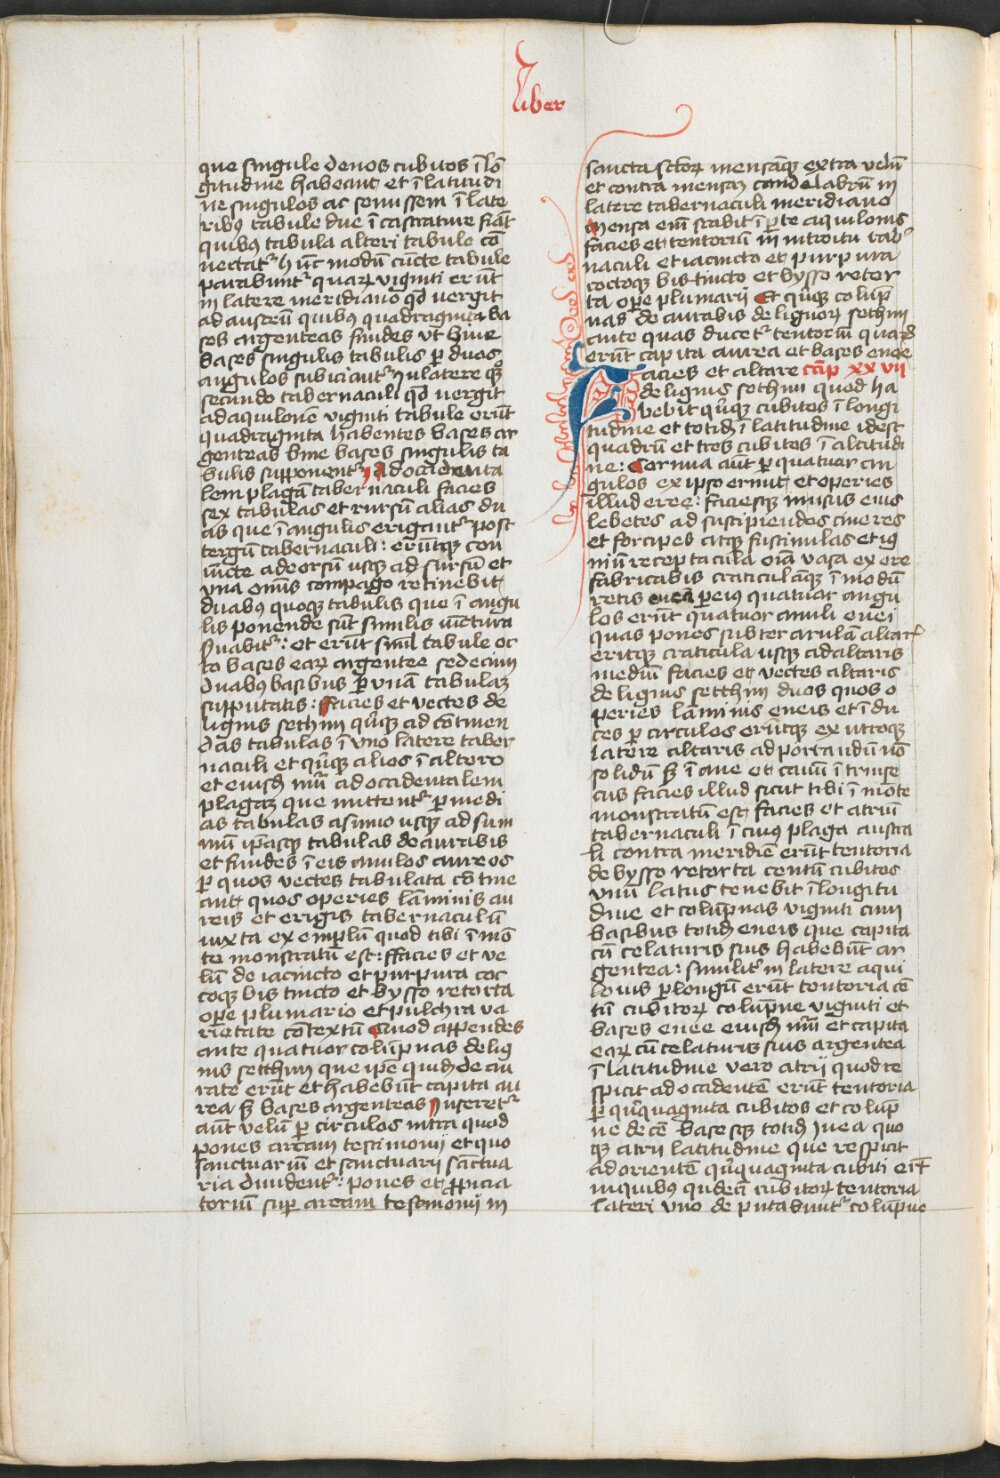 Liber
que singule denos cubitos ī lō
gitudine habeant et ī latitudi
ne singulos ac semissem ī late
ribꝰ tabule due ī castrature fiāt
quibꝰ tabula alteri tabule cō
nectatᷣ hūc modū cūcte tabule
parabuntᷣ quaꝝ viginti erūt
in latere meridiano qd̄ vergit
ad austrū quibꝰ quadraginta ba
ses argenteas fundes vt bine
bases singulis tabulis ꝑ duos
angulos subiciantᷣ in latere qꝫ
secundo tabernaculi qd̄ vergit
ad aquilonē viginti tabule erūt
quadraginta habentes bases ar
genteas bine bases singulis ta
bulis supponentᷣ Ad occidenta
lem plagā tabernaculi facies
sex tabulas et rursū alias du
as que ī angulis erigantᷣ post
tergū tabernaculi : erūtqꝫ con
iūcte a deorsū usqꝫ ad sursū et
vna omīs compago retinebit
duabꝰ quoqꝫ tabulis que ī angu
lis ponende sūt similis iūctura
seruabitᷣ : et erūt simul tabule oc
to bases eaꝝ argentee sedecim
duabꝰ basibus ꝑ vnā tabulaꝫ
supputatis : facies et vectes de
lignis sethim qͥnqꝫ ad cōtinen
das tabulas ī vno latere taber
naculi et qͥnqꝫ alios ī altero
et eiusdꝫ nūi ad occidentalem
plagaꝫ que mittentᷣ ꝑ medi
as tabulas a sūmo usqꝫ ad sum
mū ip̄asqꝫ tabulas deaurabis
et fundes ī eis anulos aureos
ꝑ quos vectes tabulata cōtine
ant quos operies lāminis au
reis et eriges tabernaculū
iuxta exemplū quod tibi ī mō
te monstratū est : ffacies et ve
lū de iacincto et purpura coc
coqꝫ bis tincto et bysso retorta
ope plumario et pulchra va
rietate cōtextū Quod appendes
ante quatuor colūpnas de lig
nis setthim que ip̄e quidꝫ deau
rate erūt et habebūt capita au
rea sꝫ bases argenteas Inseretᷣ
aūt velū ꝑ circulos intra quod
pones arcam testimonij et quo
sanctuariū et sanctuarij sāctua
ria diuidentᷣ : pones et ꝓpicia
toriū sup arcam testimonij in
sancta sctōꝝ mensāqꝫ extra velū
et contra mensaꝫ candelabrū in
latere tabernaculi meridiano
Mensa eniꝫ stabit ī ꝑte aquilonis
facies et tentoriū in introitu tabꝰ
naculi et iacincto et purpura
coctoqꝫ bis tincto et bysso retor
ta ope plumarij Et qͥnqꝫ colūp
nas deaurabis de lignoꝝ sethim
ante quas ducetᷣ tentoriū quaꝝ
erūt capita aurea et bases enee
Facies et altare cāp xxvii
de lignis sethim quod ha
bebit qͥnqꝫ cubitos ī longi
tudine et totidꝫ ī latitudine idest
quadrū et tres cubitos ī altitudi
ne : Cornua aūt ꝑ quatuor an
gulos ex ipso erunt et operies
illud ere : faciesqꝫ in usus eius
lebetes ad suscipiendos cineres
et forcipes atqꝫ fuscinulas et ig
niū receptacula oīa vasa ex ere
fabricabis craticulāqꝫ ī modū
retis eneā ꝑ eius quatuor angu
los erūt quatuor anuli enei
quas pones subter arulā altarꝭ
eritqꝫ craticula usqꝫ ad altaris
mediū facies et vectes altaris
de lignis setthim duos quos o
peries lāminis eneis et īdu
ces ꝑ circulos erūtqꝫ ex utroqꝫ
latere altaris ad portandū nō
solidū sꝫ īane et cauū ītrinse
cus facies illud sicut tibi ī mōte
monstratū est facies et atriū
tabernaculi ī cuiꝰ plaga austra
li contra meridiē erūt tentoria
de bysso retorta centū cubitos
vnū latus tenebit ī longitu
dine et colūpnas viginti cum
basibus totidꝫ eneis que capita
cū celaturis suis habebūt ar
gentea : similitᷣ in latere aqui
lonis ꝑ longū erūt tentoria cē
tū cubitoꝝ colūpne viginti et
bases enee eiusdꝫ nūi et capita
eaꝝ cū celaturis suis argentea
ī latitudine vero atrij quod re
spicit ad occidentē erūt tentoria
ꝑ qͥnquaginta cubitos et colūp
ne decē basesqꝫ totidꝫ In ea quo
qꝫ atrij latitudine que respicit
ad orientē qͥnquaginta cubiti erūt
in quibus qͥndeci cubitoꝝ tentoria
lateri vno deputabuntᷣ colūpne